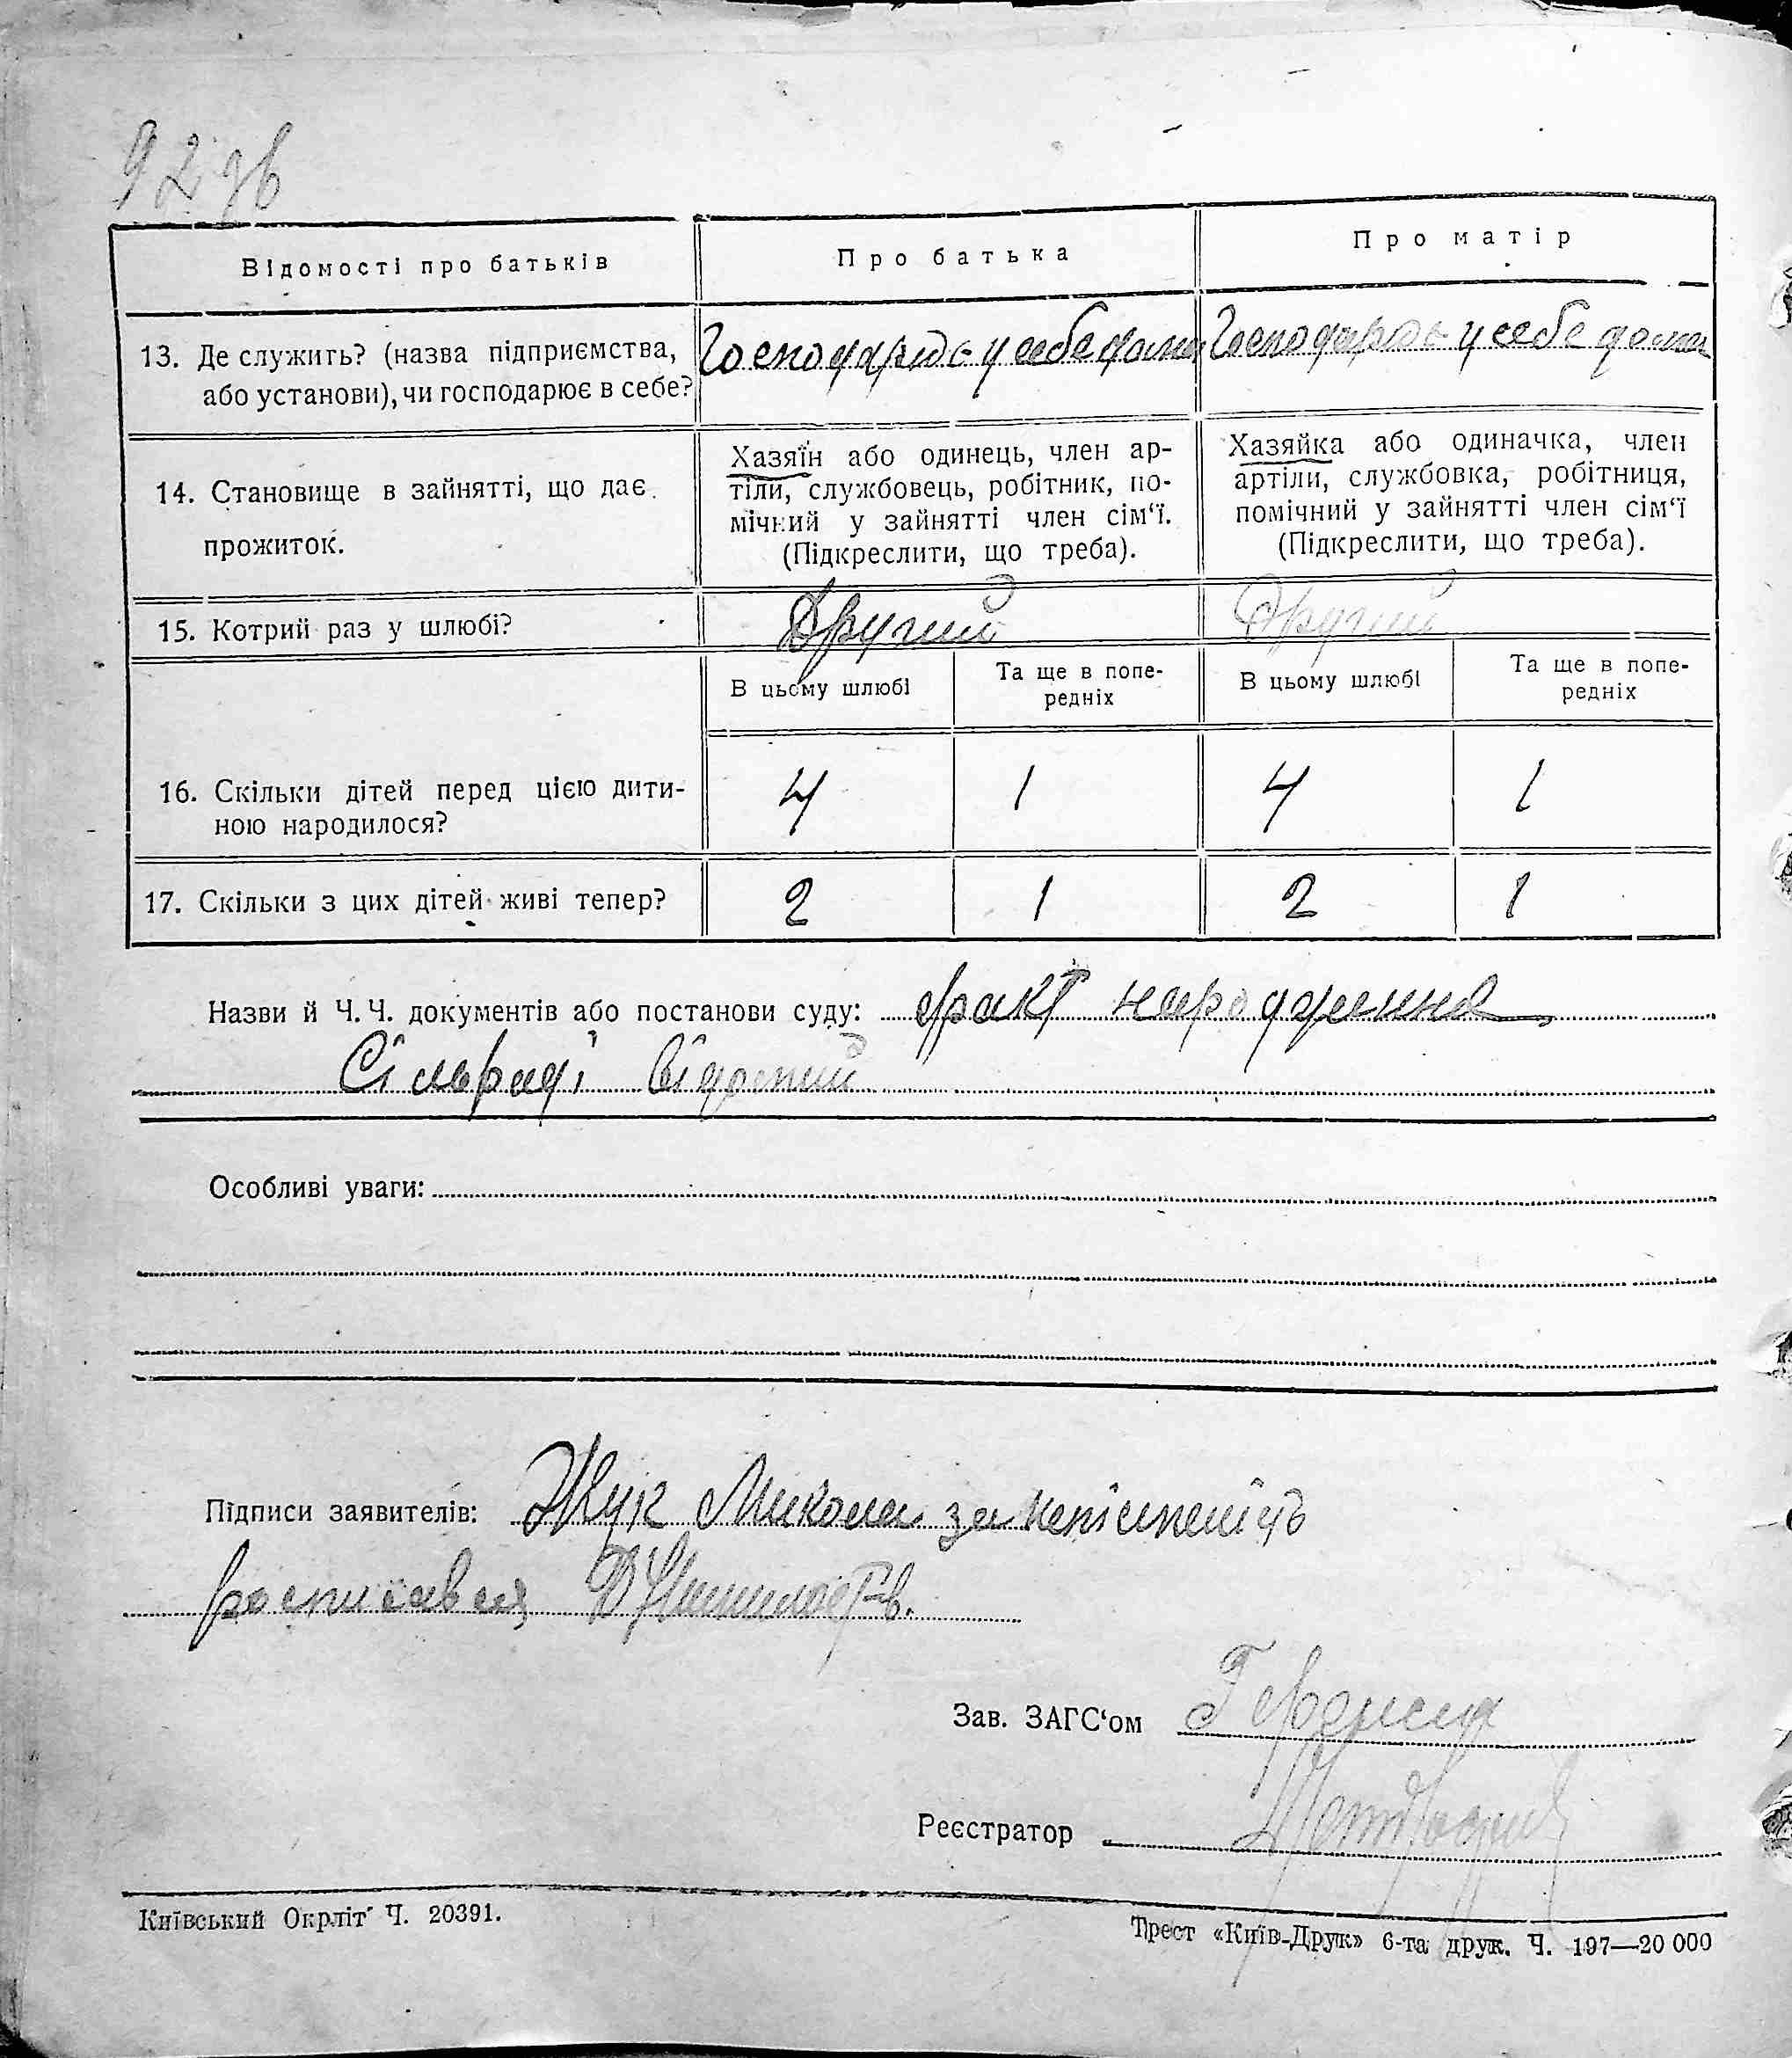 92 зв
Відомості про батьків
Про батька
Про матір
13. Де служить? (назва підприємства,
або установи), чи господарює в себе?
у себе дома
у себе дома
14. Становище в зайнятті, що дає
прожиток.
Хазяїн або одинець, член ар-
тіли, службовець, робітник, по-
мічний у зайнятті член сім‘ї.
(Підкреслити, що треба).
Хазяйка або одиначка, член
артіли, службовка, робітниця,
помічний у зайнятті член сім‘ї
(Підкреслити, що треба).
15. Котрий раз у шлюбі?
Другий
Другий
В цьому шлюбі
Та ще в попе-
редніх
В цьому шлюбі
Та ще в попе-
редніх
16. Скільки дітей перед цією дити-
ною народилося?
4 1 4 1
17. Скільки з цих дітей живі тепер?
2 1 2 1
Назви й Ч. Ч. документів або постанови суду: факт народження
Сільраді відомий
Особливі уваги:
Підписи заявителів: Жук Микола за неписьмен
росписався
Зав. ЗАГС‘ом
Реєстратор
Київський Окрліт Ч. 20391.
Трест «Київ-Друк» 6-та друк. Ч. 197—20 000